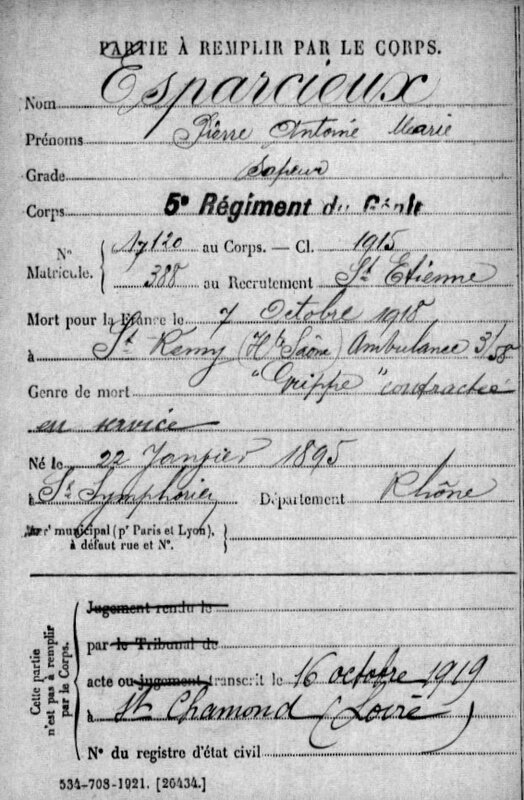 PARTIE À REMPLIR PAR LE CORPS.
Nom Esparcieux
Prénoms Pierre Antoine Marie
Grade Sapeur
Corps 5e Régiment du Génie
No Matricule. 17120 au Corps. — Cl. 1915
388 au Recrutement St Etienne
Mort pour la France le 7 Octobre 1918
à St Remy (Hte Saône) Ambulance 3/58
Genre de mort "Grippe" contractée
en service
Né le 22 Janvier 1895
à St Symphorien Département Rhône
Arrt municipal (pr Paris et Lyon),
à défaut rue et No.
Cette partie n'est pas à remplir par le Corps.
Jugement rendu le
par le Tribunal de
acte ou jugement transcrit le 16 octobre 1919
à St Chamond (Loire)
No du registre d'état civil
534-708-1921. [26434.]